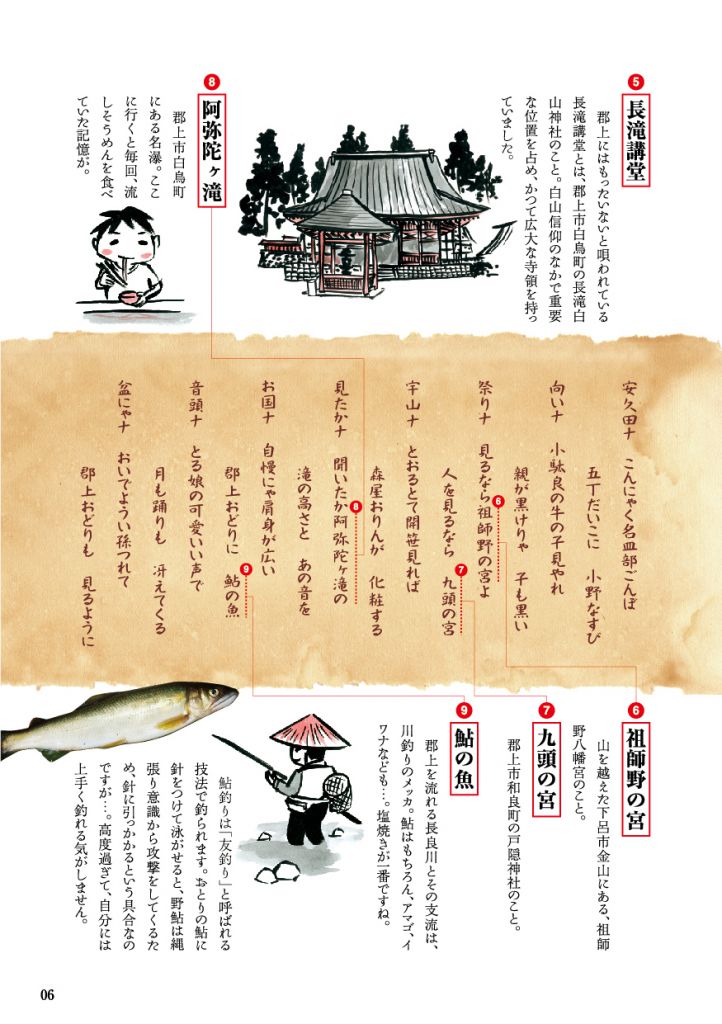 5
長滝講堂
郡上にはもったいないと唄われている
長滝講堂とは、郡上市白鳥町の長滝白
山神社のこと。白山信仰のなかで重要
な位置を占め、かつて広大な寺領を持っ
ていました。
8
阿弥陀ヶ滝
郡上市白鳥町
にある名瀑。ここ
に行くと毎回、流
しそうめんを食べ
ていた記憶が。
安久田ナ こんにゃく名皿部ごんぼ
五丁だいこに 小野なすび
向いナ 小駄良の牛の子見やれ
親が黒けりゃ 子も黒い
祭りナ 見るなら祖師野の宮よ
6
人を見るなら 九頭の宮
7
宇山ナ とおるとて開笹見れば
森屋おりんが 化粧する
見たかナ 聞いたか阿弥陀ヶ滝の
8
滝の高さと あの音を
お国ナ 自慢にゃ肩身が広い
郡上おどりに 鮎の魚
9
音頭ナ とる娘の可愛いい声で
月も踊りも 冴えてくる
盆にゃナ おいでようい孫つれて
郡上おどりも 見るように
6
祖師野の宮
山を越えた下呂市金山にある、祖師
野八幡宮のこと。
7
九頭の宮
郡上市和良町の戸隠神社のこと。
9
鮎の魚
郡上を流れる長良川とその支流は、
川釣りのメッカ。鮎はもちろん、アマゴ、イ
ワナなども…。塩焼きが一番ですね。
鮎釣りは「友釣り」と呼ばれる
技法で釣られます。おとりの鮎に
針をつけて泳がせると、野鮎は縄
張り意識から攻撃をしてくるた
め、針に引っかかるという具合なの
ですが…。高度過ぎて、自分には
上手く釣れる気がしません。
06